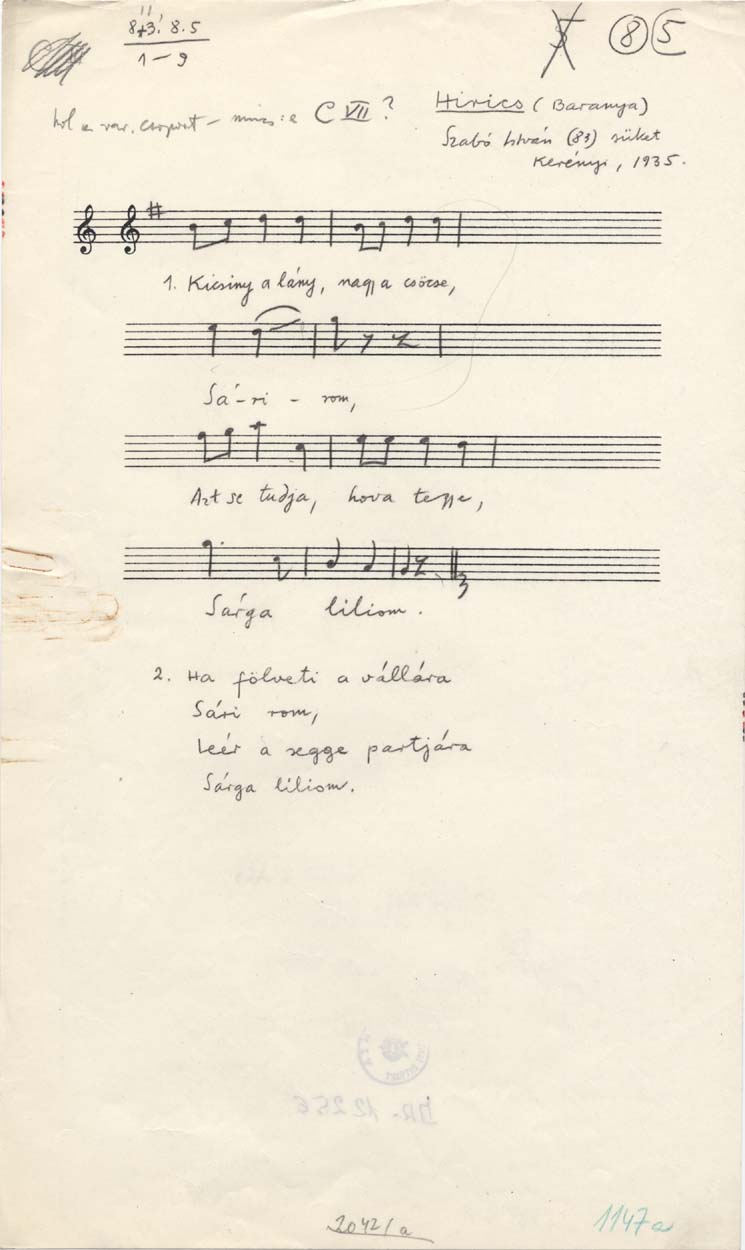 8+3! 8.5
1-9
⑧ 5
hol a var. csoport - nincs-e C VII?
Hirics (Baranya)
Szabó István (83) süket
Kerényi, 1935.
1. Kicsiny a lány, nagy a csöcse,
Sá-ri - rom,
Azt se tudja, hova tegye,
Sárga liliom.
2. Ha fölveti a vállára
Sári rom,
Leér a segge partjára
Sárga liliom.
DR-12286
2042/a
1147a